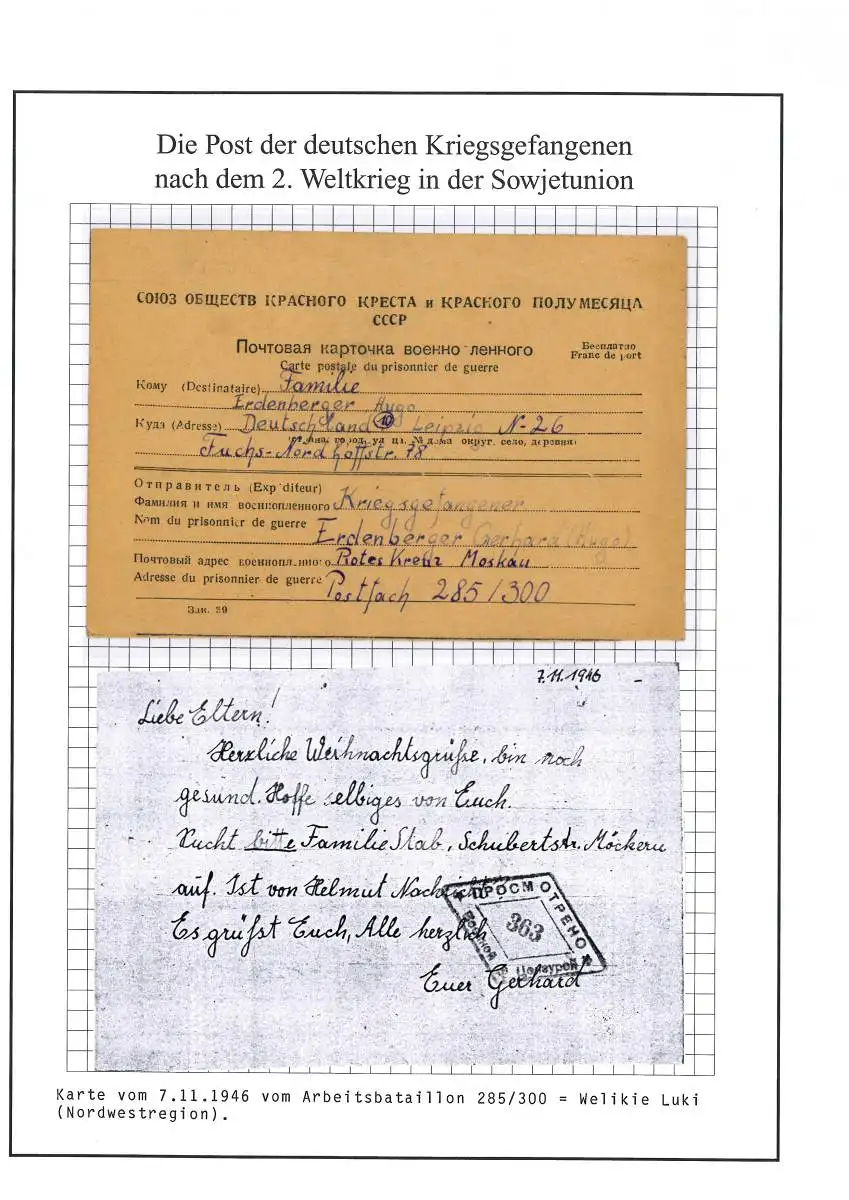 Die Post der deutschen Kriegsgefangenen
nach dem 2. Weltkrieg in der Sowjetunion
СОЮЗ ОБЩЕСТВ КРАСНОГО КРЕСТА и КРАСНОГО ПОЛУМЕСЯЦА
СССР
Почтовая карточка военно ленного
Бесплатно
Franc de port
Carte postale du prisonnier de guerre
Кому (Destinataire) Familie
Erdenberger, Hugo
Куда (Adresse) Deutschland 10 Leipzig N-26
Fuchs-Nordhoffstr. 78
Отправитель (Exp diteur)
Фамилия и имя военнопленного Kriegsgefangener
Nom du prisonnier de guerre
Erdenberger Gerhard (Hugo)
Почтовый адрес военнопленно о Rotes Kreuz Moskau
Adresse du prisonnier de guerre Postfach 285/300
Зак. 39
7.11.1946
Liebe Eltern!
Herzliche Weihnachtsgrüße, bin noch
gesund. Hoffe selbiges von Euch.
Sucht bitte Familie Stab, Schubertstr. Möckern
auf. Ist von Helmut
Es grüßt Euch, Alle herzlich
Euer Gerhard
ПРОСМОТРЕНО
363
Военной
Цензурой
Karte vom 7.11.1946 vom Arbeitsbataillon 285/300 = Welikie Luki
(Nordwestregion).